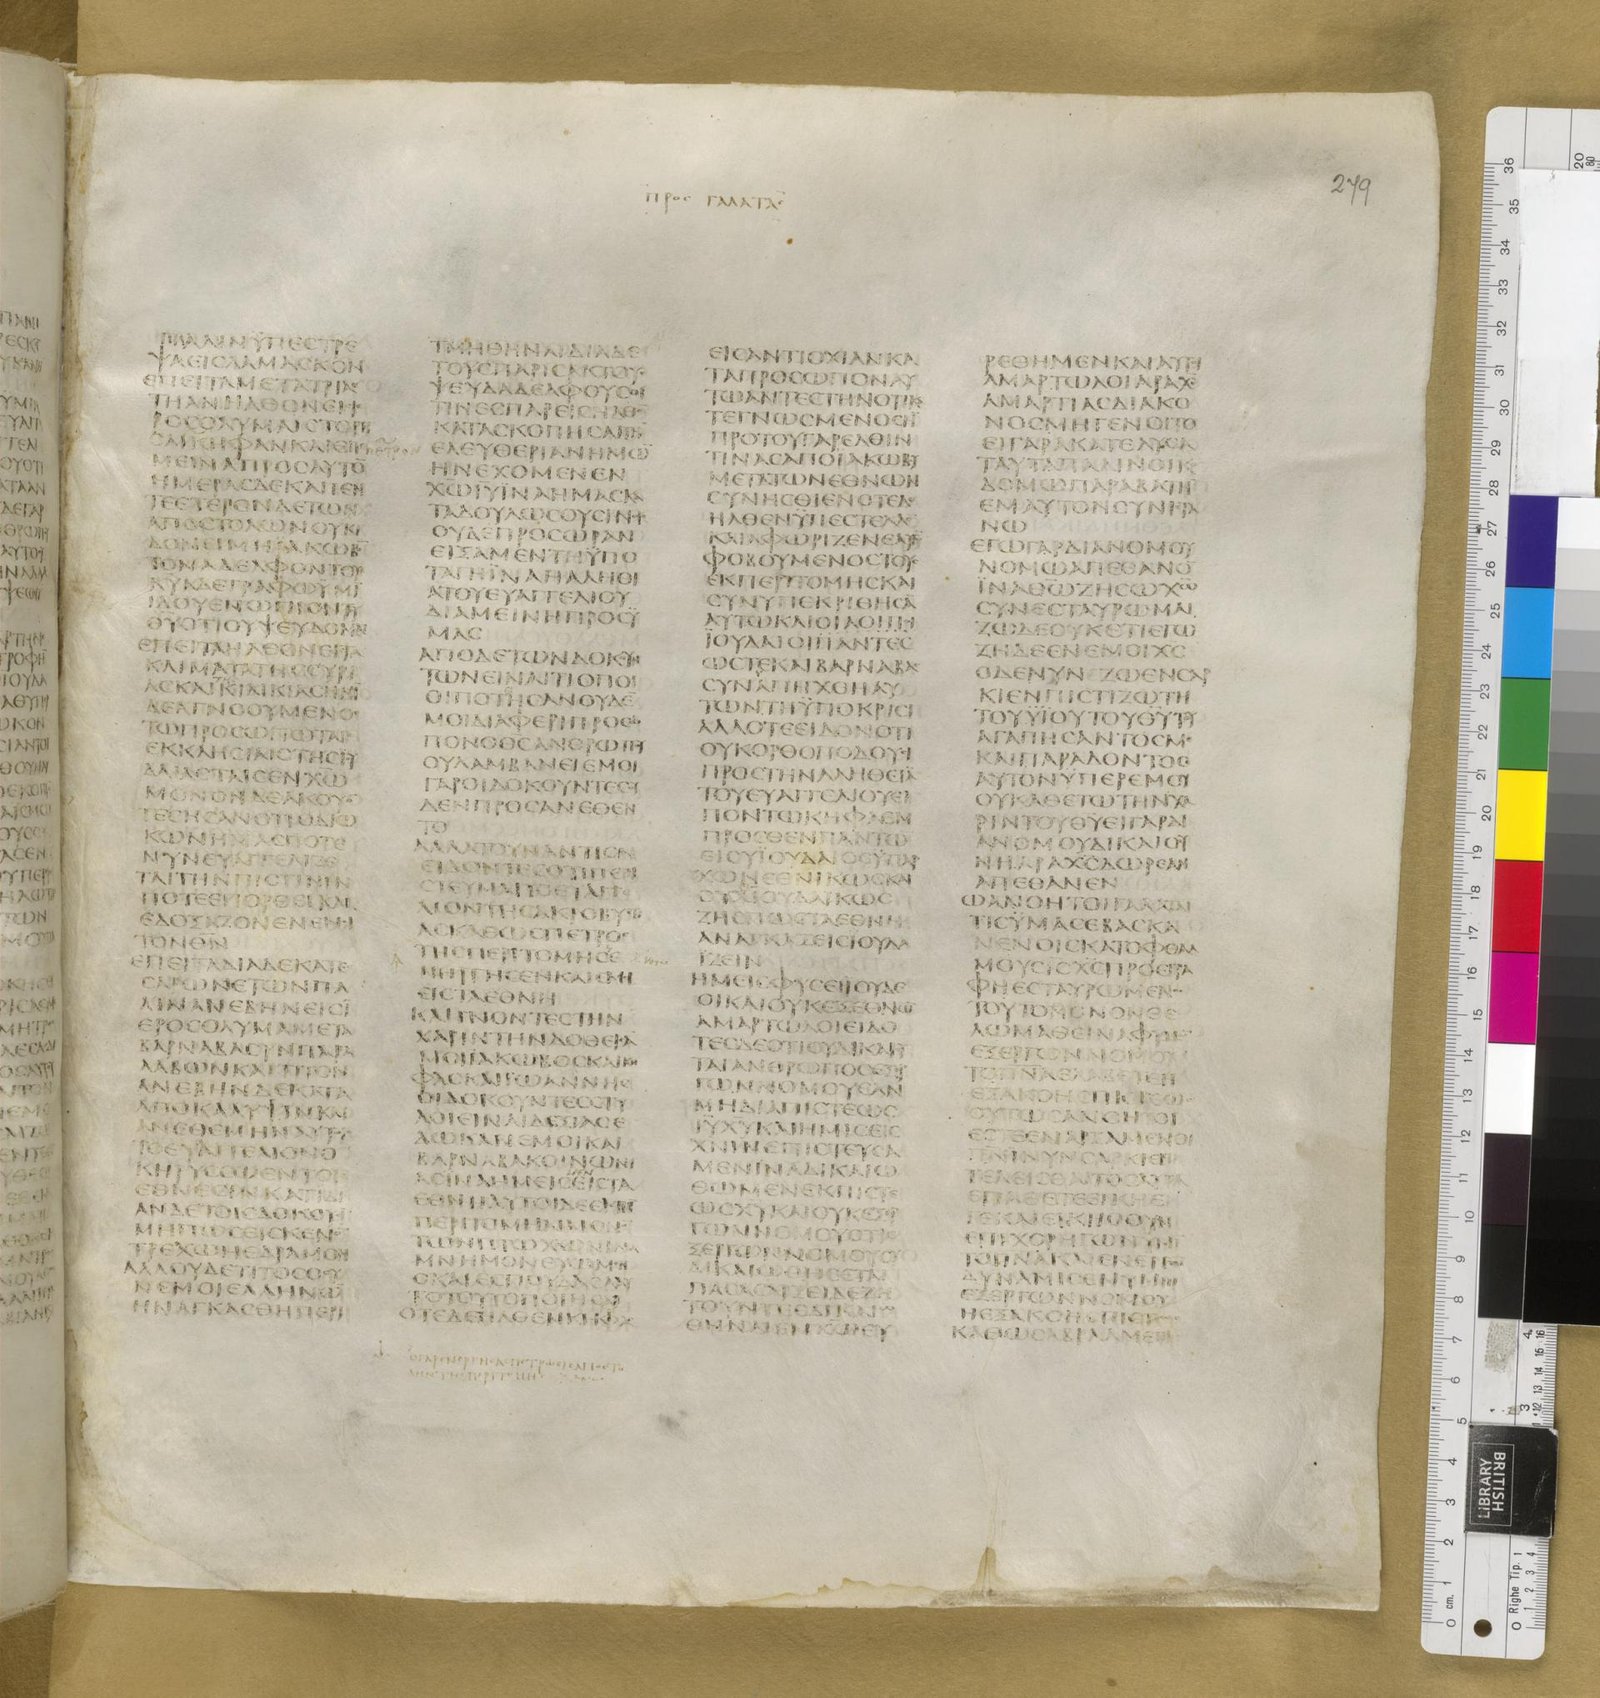 προς γαλατας
279
ΠΑΛΙΝΫΠΕΣΤΡΕ
ΨΑΕΙΣΔΑΜΑΣΚΟΝ
ΕΠΕΙΤΑΜΕΤΑΤΡΙΑ
ΤΗΑΝΗΛΘΟΝΕΙΗ
ΡΟΣΟΛΥΜΑΙΣΤΟΡΗ
ΣΑΙΚΗΦΑΝΚΑΙΕΠΕ
ΜΕΙΝΑΠΡΟΣΑΥΤΟ
ΗΜΕΡΑΣΔΕΚΑΠΕΝ
ΤΕΕΤΕΡΟΝΔΕΤΩΝ
ΑΠΟΣΤΟΛΩΝΟΥΚΙ
ΔΟΝΕΙΜΗΙΑΚΩΒΟ
ΤΟΝΑΔΕΛΦΟΝΤΟΥ
ΚΥΑΔΕΓΡΑΦΩΫΜΙ
ΙΔΟΥΕΝΩΠΙΟΝΤΟΥ
ΘΥΟΤΙΟΥΨΕΥΔΟΜΑΙ
ΕΠΕΙΤΑΗΛΘΟΝΕΙΣΤΑ
ΚΛΙΜΑΤΑΤΗΣΣΥΡΙ
ΑΣΚΑΙΚΙΛΙΚΙΑΣΗΜΗ
ΔΕΑΓΝΟΟΥΜΕΝΟΣ
ΤΩΠΡΟΣΩΠΩΤΑΙΣ
ΕΚΚΛΗΣΙΑΙΣΤΗΣΙΟΥ
ΔΑΙΑΣΤΑΙΣΕΝΧΩ
ΜΟΝΟΝΔΕΑΚΟΥΟ
ΤΕΣΗΣΑΝΟΤΙΟΔΙΩ
ΚΩΝΗΜΑΣΠΟΤΕ
ΝΥΝΕΥΑΓΓΕΛΙΖΕ
ΤΑΙΤΗΝΠΙΣΤΙΝΗΝ
ΠΟΤΕΕΠΟΡΘΕΙΚΑΙ
ΕΔΟΞΑΖΟΝΕΝΕΜΟΙ
ΤΟΝΘΝ
ΕΠΕΙΤΑΔΙΑΔΕΚΑΤΕ
ΣΑΡΩΝΕΤΩΝΠΑ
ΛΙΝΑΝΕΒΗΝΕΙΣΪ
ΕΡΟΣΟΛΥΜΑΜΕΤΑ
ΒΑΡΝΑΒΑΣΥΝΠΑΡΑ
ΛΑΒΩΝΚΑΙΤΙΤΟΝ
ΑΝΕΒΗΝΔΕΚΑΤΑ
ΑΠΟΚΑΛΥΨΙΝΚΑΙ
ΑΝΕΘΕΜΗΝΑΥΤΟΙΣ
ΤΟΕΥΑΓΓΕΛΙΟΝΟ
ΚΗΡΥΣΣΩΕΝΤΟΙΣ
ΕΘΝΕΣΙΝΚΑΤΙΔΙ
ΑΝΔΕΤΟΙΣΔΟΚΟΥΣΙ
ΜΗΠΩΣΕΙΣΚΕΝΟΝ
ΤΡΕΧΩΗΕΔΡΑΜΟΝ
ΑΛΛΟΥΔΕΤΙΤΟΣΟΣΥ
ΝΕΜΟΙΕΛΛΗΝΩΝ
ΗΝΑΓΚΑΣΘΗΠΕΡΙ
ΤΜΗΘΗΝΑΙΔΙΑΔΕ
ΤΟΥΣΠΑΡΙΣΑΚΤΟΥΣ
ΨΕΥΔΑΔΕΛΦΟΥΣΟΙ
ΤΙΝΕΣΠΑΡΕΙΣΗΛΘΟ
ΚΑΤΑΣΚΟΠΗΣΑΙΤΗΝ
ΕΛΕΥΘΕΡΙΑΝΗΜΩ
ΗΝΕΧΟΜΕΝΕΝ
ΧΩΙΥΪΝΑΗΜΑΣΚΑ
ΤΑΔΟΥΛΩΣΟΥΣΙΝ
ΟΥΔΕΠΡΟΣΩΡΑΝ
ΕΙΞΑΜΕΝΤΗΫΠΟ
ΤΑΓΗΪΝΑΗΑΛΗΘΙ
ΑΤΟΥΕΥΑΓΓΕΛΙΟΥ
ΔΙΑΜΕΙΝΗΠΡΟΣΫ
ΜΑΣ
ΑΠΟΔΕΤΩΝΔΟΚΟΥ
ΤΩΝΕΙΝΑΙΤΙΟΠΟΙ
ΟΙΠΟΤΗΣΑΝΟΥΔΕ
ΜΟΙΔΙΑΦΕΡΙΠΡΟΣΩ
ΠΟΝΟΘΣΑΝΘΡΩΠΟΥ
ΟΥΛΑΜΒΑΝΕΙΕΜΟΙ
ΓΑΡΟΙΔΟΚΟΥΝΤΕΣΟΥ
ΔΕΝΠΡΟΣΑΝΕΘΕΝ
ΤΟ
ΑΛΛΑΤΟΥΝΑΝΤΙΟΝ
ΕΙΔΟΝΤΕΣΟΤΙΠΕΠΙ
ΣΤΕΥΜΑΙΤΟΕΥΑΓΓΕ
ΛΙΟΝΤΗΣΑΚΡΟΒΥΣΤΙ
ΑΣΚΑΘΩΣΠΕΤΡΟΣ
ΤΗΣΠΕΡΙΤΟΜΗΣ
ΝΗΡΓΗΣΕΝΚΑΙΕΜΟΙ
ΕΙΣΤΑΕΘΝΗ
ΚΑΙΓΝΟΝΤΕΣΤΗΝ
ΧΑΡΙΝΤΗΝΔΟΘΕΙΣΑ
ΜΟΙΙΑΚΩΒΟΣΚΑΙΚΗ
ΦΑΣΚΑΙΙΩΑΝΝΗΣ
ΟΙΔΟΚΟΥΝΤΕΣΣΤΥ
ΛΟΙΕΙΝΑΙΔΕΞΙΑΣΕ
ΔΩΚΑΝΕΜΟΙΚΑΙ
ΒΑΡΝΑΒΑΚΟΙΝΩΝΙ
ΑΣΙΝΑΗΜΕΙΣΕΙΣΤΑ
ΕΘΝΗΑΥΤΟΙΔΕΕΙΣΤΗ
ΠΕΡΙΤΟΜΗΝΜΟΝΟ
ΤΩΝΠΤΩΧΩΝΙΝΑ
ΜΝΗΜΟΝΕΥΩΜΕΝ
ΟΚΑΙΕΣΠΟΥΔΑΣΑΑΥ
ΤΟΤΟΥΤΟΠΟΙΗΣΑΙ
ΟΤΕΔΕΗΛΘΕΝΚΗΦΑΣ
ΕΙΣΑΝΤΙΟΧΙΑΝΚΑ
ΤΑΠΡΟΣΩΠΟΝΑΥ
ΤΩΑΝΤΕΣΤΗΝΟΤΙΚΑ
ΤΕΓΝΩΣΜΕΝΟΣΗ
ΠΡΟΤΟΥΓΑΡΕΛΘΙΝ
ΤΙΝΑΣΑΠΟΙΑΚΩΒΟΥ
ΜΕΤΑΤΩΝΕΘΝΩΝ
ΣΥΝΗΣΘΙΕΝΟΤΕΔΕ
ΗΛΘΕΝΫΠΕΣΤΕΛΛΕ
ΚΑΙΑΦΩΡΙΖΕΝΕΑΥΤΟ
ΦΟΒΟΥΜΕΝΟΣΤΟΥΣ
ΕΚΠΕΡΙΤΟΜΗΣΚΑΙ
ΣΥΝΥΠΕΚΡΙΘΗΣΑ
ΑΥΤΩΚΑΙΟΙΛΟΙΠΟΙ
ΪΟΥΔΑΙΟΙΠΑΝΤΕΣ
ΩΣΤΕΚΑΙΒΑΡΝΑΒΑΣ
ΣΥΝΑΠΗΧΘΗΑΥ
ΤΩΝΤΗΫΠΟΚΡΙΣΙ
ΑΛΛΟΤΕΕΙΔΟΝΟΤΙ
ΟΥΚΟΡΘΟΠΟΔΟΥΣΙ
ΠΡΟΣΤΗΝΑΛΗΘΕΙΑ
ΤΟΥΕΥΑΓΓΕΛΙΟΥΕΙ
ΠΟΝΤΩΚΗΦΑΕΜ
ΠΡΟΣΘΕΝΠΑΝΤΩ
ΕΙΣΥΪΟΥΔΑΙΟΣΫΠΑΡ
ΧΩΝΕΘΝΙΚΩΣΚΑΙ
ΟΥΧΙΟΥΔΑΙΚΩΣ
ΖΗΣΠΩΣΤΑΕΘΝΗ
ΑΝΑΓΚΑΖΕΙΣΙΟΥΔΑ
ΪΖΕΙΝ
ΗΜΕΙΣΦΥΣΕΙΙΟΥΔΕ
ΟΙΚΑΙΟΥΚΕΞΕΘΝΩ
ΑΜΑΡΤΩΛΟΙΕΙΔΟ
ΤΕΣΔΕΟΤΙΟΥΔΙΚΑΙΟΥ
ΤΑΙΑΝΘΡΩΠΟΣΕΞΕΡ
ΓΩΝΝΟΜΟΥΕΑΝ
ΜΗΔΙΑΠΙΣΤΕΩΣ
ΙΥΧΥΚΑΙΗΜΙΣΕΙΣ
ΧΝΙΝΕΠΙΣΤΕΥΣΑ
ΜΕΝΙΝΑΔΙΚΑΙΩ
ΘΩΜΕΝΕΚΠΙΣΤΕ
ΩΣΧΥΚΑΙΟΥΚΕΞΕΡ
ΓΩΝΝΟΜΟΥΟΤΙ
ΞΕΡΓΩΝΝΟΜΟΥΟΥ
ΔΙΚΑΙΩΘΗΣΕΤΑΙ
ΠΑΣΑΣΑΡΞΕΙΔΕΖΗ
ΤΟΥΝΤΕΣΔΙΚΑΙΩ
ΘΗΝΑΙΕΝΧΩΕΥ
ΡΕΘΗΜΕΝΚΑΙΑΥΤΟΙ
ΑΜΑΡΤΩΛΟΙΑΡΑΧΣ
ΑΜΑΡΤΙΑΣΔΙΑΚΟ
ΝΟΣΜΗΓΕΝΟΙΤΟ
ΕΙΓΑΡΑΚΑΤΕΛΥΣΑ
ΤΑΥΤΑΠΑΛΙΝΟΙΚΟ
ΔΟΜΩΠΑΡΑΒΑΤΗΝ
ΕΜΑΥΤΟΝΣΥΝΙΣΤΑ
ΝΩ
ΕΓΩΓΑΡΔΙΑΝΟΜΟΥ
ΝΟΜΩΑΠΕΘΑΝΟ
ΪΝΑΘΩΖΗΣΩΧΩ
ΣΥΝΕΣΤΑΥΡΩΜΑΙ
ΖΩΔΕΟΥΚΕΤΙΕΓΩ
ΖΗΔΕΕΝΕΜΟΙΧΣ
ΟΔΕΝΥΝΖΩΕΝΣΑΡ
ΚΙΕΝΠΙΣΤΙΖΩΤΗ
ΤΟΥΫΪΟΥΤΟΥΘΥΤΟΥ
ΑΓΑΠΗΣΑΝΤΟΣΜΕ
ΚΑΙΠΑΡΑΔΟΝΤΟΣ
ΑΥΤΟΝΫΠΕΡΕΜΟΥ
ΟΥΚΑΘΕΤΩΤΗΝΧΑ
ΡΙΝΤΟΥΘΥΕΙΓΑΡΔΙ
ΑΝΟΜΟΥΔΙΚΑΙΟΣΥ
ΝΗΑΡΑΧΣΔΩΡΕΑΝ
ΑΠΕΘΑΝΕΝ
ΩΑΝΟΗΤΟΙΓΑΛΑΤΑΙ
ΤΙΣΫΜΑΣΕΒΑΣΚΑ
ΝΕΝΟΙΣΚΑΤΟΦΘΑΛ
ΜΟΥΣΙΣΧΣΠΡΟΕΓΡΑ
ΦΗΕΣΤΑΥΡΩΜΕΝΟΣ
ΤΟΥΤΟΜΟΝΟΝΘΕ
ΛΩΜΑΘΕΙΝΑΦΥΜΩ
ΕΞΕΡΓΩΝΝΟΜΟΥ
ΤΟΠΝΑΕΛΑΒΕΤΕΗ
ΕΞΑΚΟΗΣΠΙΣΤΕΩΣ
ΟΥΤΩΣΑΝΟΗΤΟΙ
ΕΣΤΕΕΝΑΡΞΑΜΕΝΟΙ
ΠΝΙΝΥΝΣΑΡΚΙΕΠΙ
ΤΕΛΕΙΣΘΑΙΤΟΣΑΥΤΑ
ΕΠΑΘΕΤΕΕΙΚΗΕΙ
ΓΕΚΑΙΕΙΚΗΟΟΥΝ
ΕΠΙΧΟΡΗΓΩΝΥΜΙ
ΤΟΠΝΑΚΑΙΕΝΕΡΓΩ
ΔΥΝΑΜΙΣΕΝΥΜΙΝ
ΕΞΕΡΓΩΝΝΟΜΟΥ
ΗΕΞΑΚΟΗΣΠΙΣΤΕΩΣ
ΚΑΘΩΣΑΒΡΑΑΜΕΠΙ
BRITISH
LIBRARY